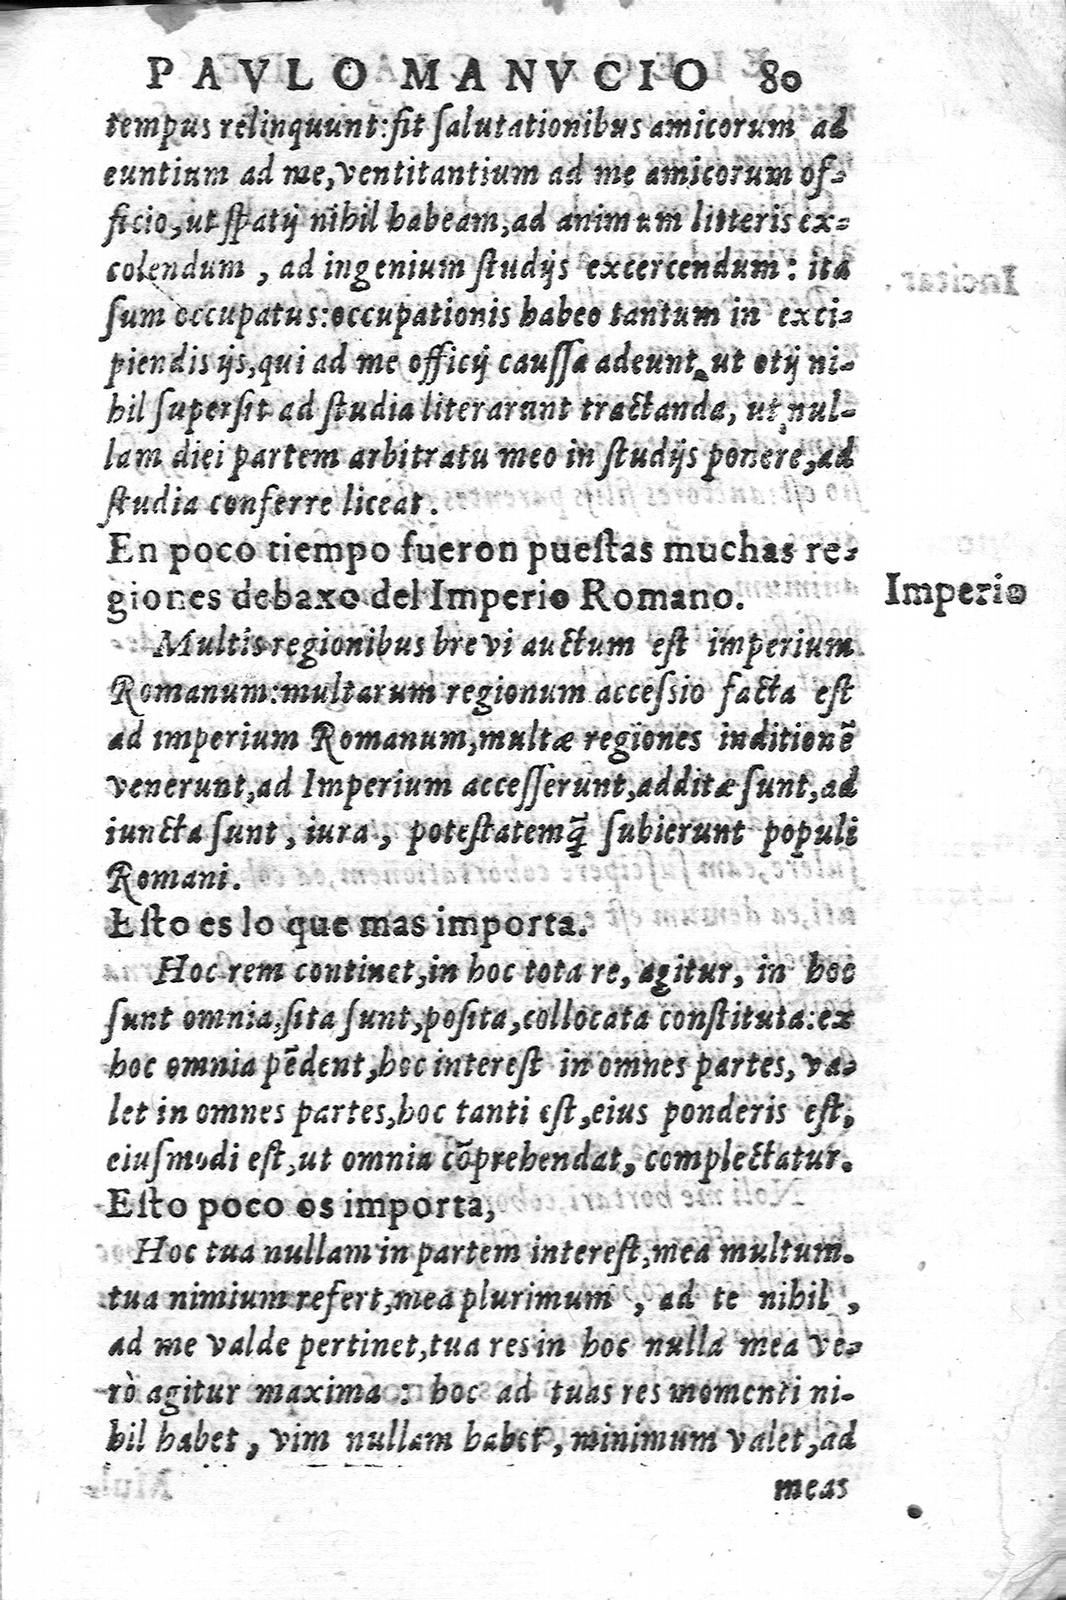 PAVLO MANVCIO 80
tempus relinquunt: fit salutationibus amicorum ad
euntium ad me, ventitantium ad me amicorum of-
ficio, ut spatij nihil habeam, ad animum litteris ex-
colendum, ad ingenium studijs excercendum: ita
sum occupatus: occupationis habeo tantum in exci-
piendis ijs, qui ad me officij caussa adeunt, ut otij ni-
hil supersit ad studia literarunt tractanda, ut nul-
lam diei partem arbitratu meo in studijs ponere, ad
studia conferre liceat.
En poco tiempo fueron puestas muchas re-
giones debaxo del Imperio Romano.
Imperio
Multis regionibus brevi auctum est imperium
Romanum: multarum regionum accessio facta est
ad imperium Romanum, multæ regiones inditionē
venerunt, ad Imperium accesserunt, additæ sunt, ad
iuncta sunt, iura, potestatemq̃ subierunt populi
Romani.
Esto es lo que mas importa.
Hoc rem continet, in hoc tota re, agitur, in hoc
sunt omnia, sita sunt, posita, collocata constituta: ex
hoc omnia pēdent, hoc interest in omnes partes, va-
let in omnes partes, hoc tanti est, eius ponderis est,
eiusmodi est, ut omnia cōprehendat, complectatur.
Esto poco os importa,
Hoc tua nullam in partem interest, mea multum.
tua nimium refert, mea plurimum, ad te nihil,
ad me valde pertinet, tua res in hoc nulla mea ve-
rò agitur maxima: hoc ad tuas res momenti ni-
hil habet, vim nullam habet, minimum valet, ad
meas